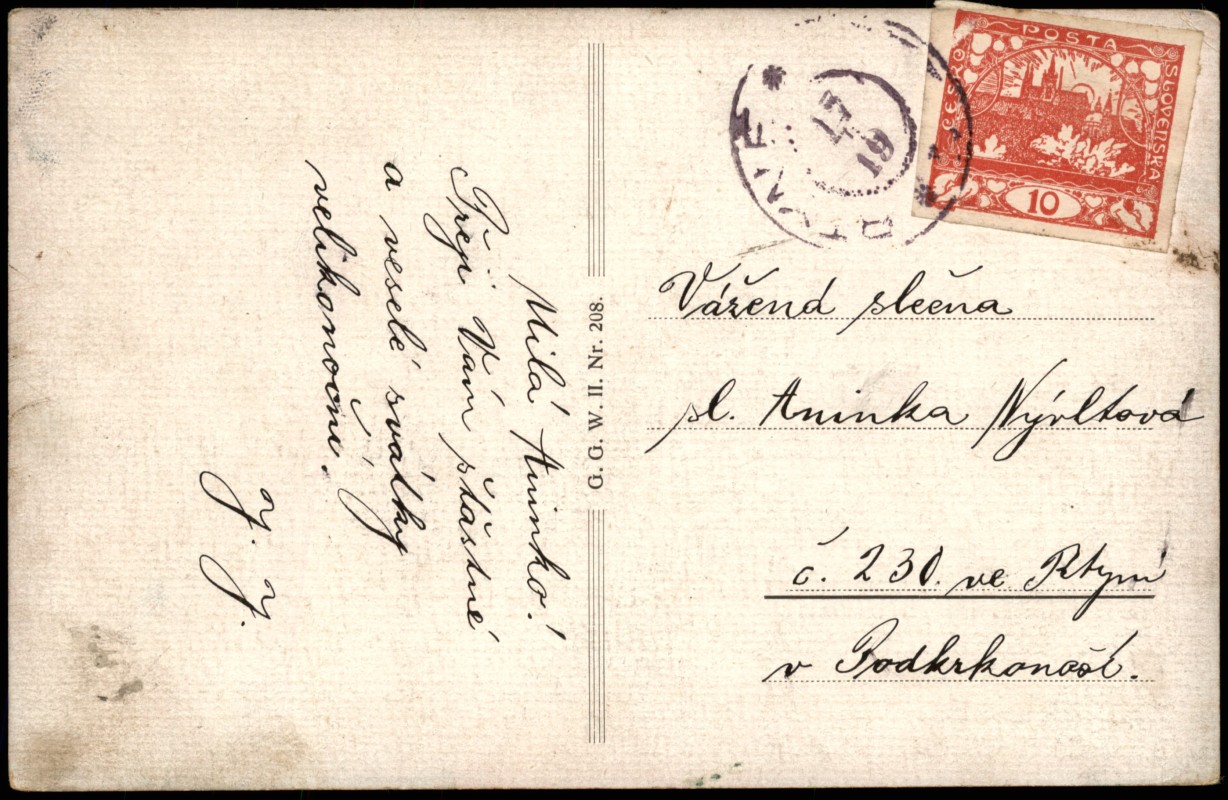 Milá Aninko!
Přeji Vám šťastné
a veselé svátky
velikonoční.
J. J.
G. G. W. II. Nr. 208.
17
19
POŠTA
ČESKO
SLOVENSKÁ
10
Vážená slečna
sl. Aninka Nývltová
č. 230. ve Rtyni
v Podkrkonoší.